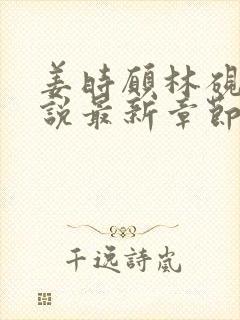 姜時願林硯
說最新章節
千逸詩嵐